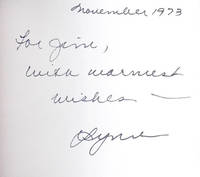 November 1973
For Jim,
with warmest
wishes —